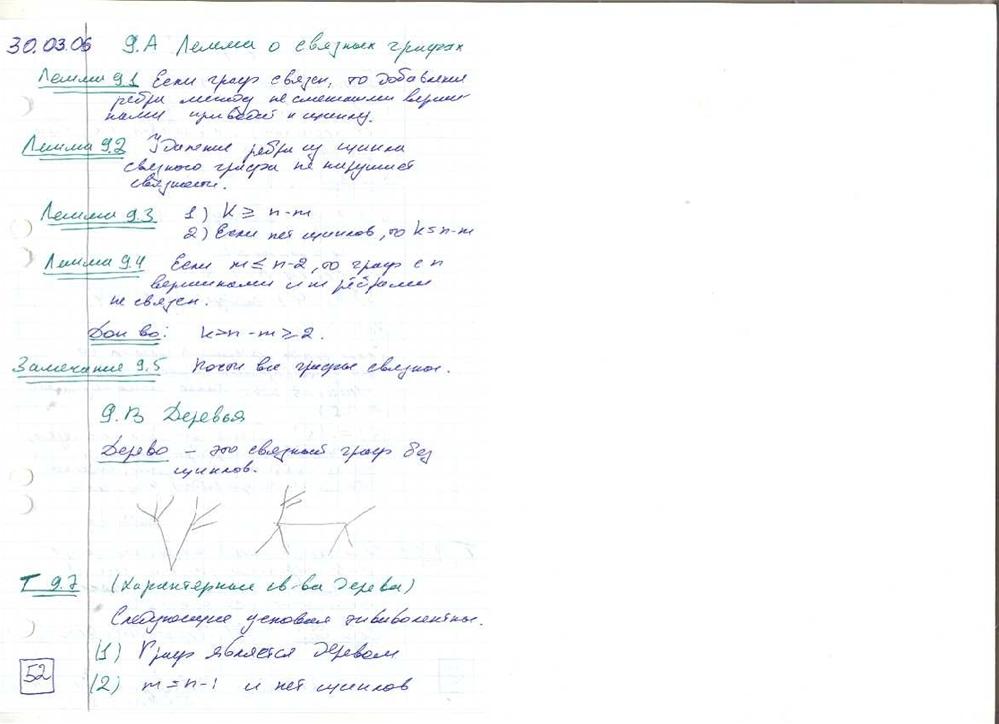 30.03.06 9.A Лемма о связных графах
Лемма 9.1 Если граф связен, то добавление
ребра между несмежными верши-
нами приводит к циклу.
Лемма 9.2 Удаление ребра из цикла
связного графа не нарушает
связности.
Лемма 9.3 1) k ≥ n-m
2) Если нет циклов, то k=n-m
Лемма 9.4 Если m ≤ n-2, то граф с n
вершинами и m рёбрами
не связен.
Док-во: k ≥ n-m ≥ 2.
Замечание 9.5 Почти все графы связные.
9.B Деревья
Дерево - это связный граф без
циклов.
Т 9.7 (Характерные св-ва дерева)
Следующие условия эквивалентны.
(1) Граф является деревом
52
(2) m=n-1 и нет циклов